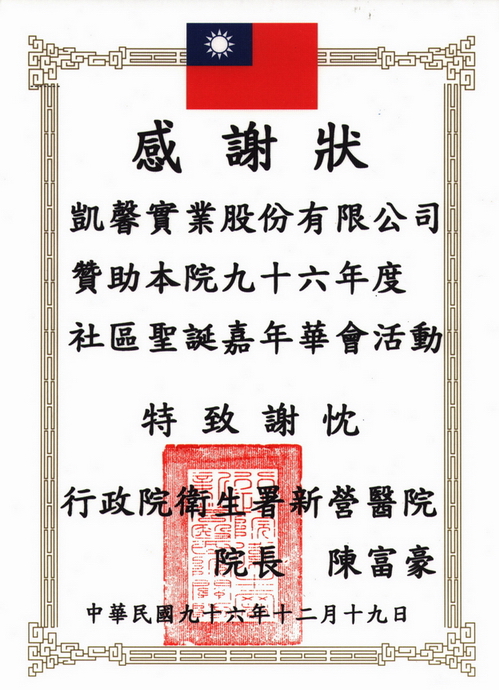 感謝狀
凱馨實業股份有限公司
贊助本院九十六年度
社區聖誕嘉年華會活動
特致謝忱
行政院衛生署新營醫院
院長 陳富豪
中華民國九十六年十二月十九日